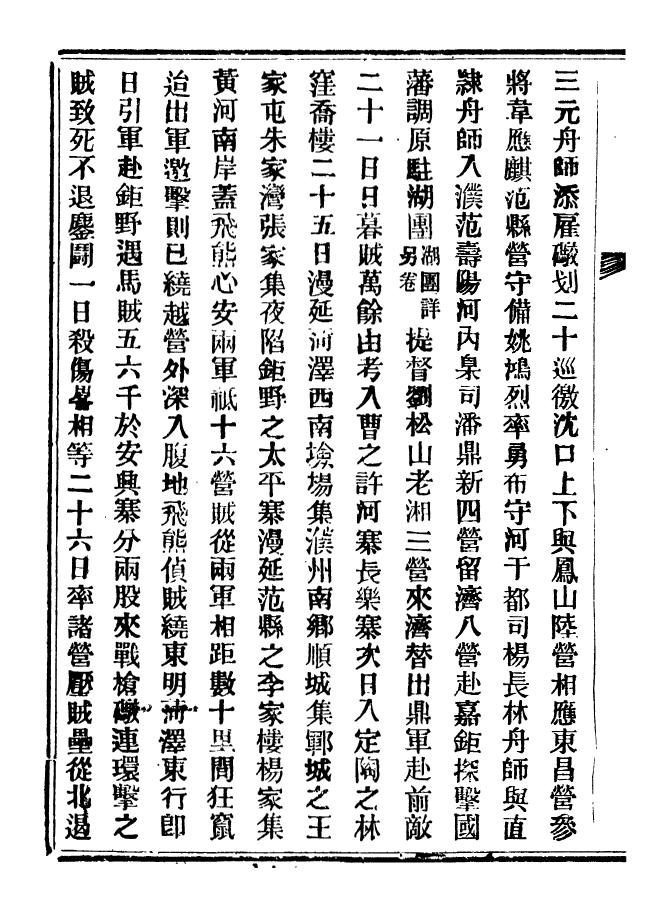 三元舟師添雇礮划二十巡徼沈口上下與鳳山陸營相應東昌營參
將韋應麒范縣營守備姚鴻烈率勇布守河干都司楊長林舟師與直
隸舟師入濮范壽陽河內臬司潘鼎新四營留濟八營赴嘉鉅探擊國
藩調原駐湖團湖團詳另卷提督劉松山老湘三營來濟替出鼎軍赴前敵
二十一日日暮賊萬餘由考入曹之許河寨長樂寨次日入定陶之林
窪喬樓二十五日漫延菏澤西南塝楊集濮州南鄉順城集鄆城之王
家屯朱家灣張家集夜陷鉅野之太平寨漫延范縣之李家樓楊家集
黃河南岸蓋飛熊心安兩軍祗十六營賊從兩軍相距數十里間狂竄
迨出軍邀擊則已繞越營外深入腹地飛熊偵賊繞東明菏澤東行卽
日引軍赴鉅野遇馬賊五六千於安興寨分兩股來戰槍礮連環擊之
賊致死不退鏖鬭一日殺傷畧相等二十六日率諸營壓賊壘從北遏